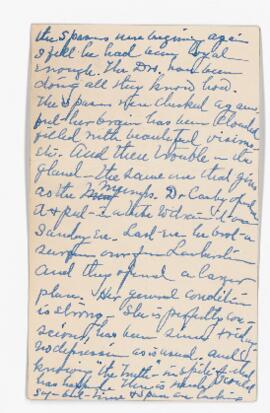 the spasms were beginning again
I felt he had been loyal
enough. The Drs. have been
doing all they know how.
The spasms were checked again,
but her brain has been clouded
filled with beautiful visions
etc. And then trouble in the
gland - the same one that gives
as the Mumps. Dr
a
Sunday Eve. Last eve he brot a
surgeon over from
And they opened a larger
place. Her general condition
is strong. She is perfectly con-
scious, has been since Friday
no depression as is usual. And
knowing "the truth" in spite of what
has happened
say - but time &